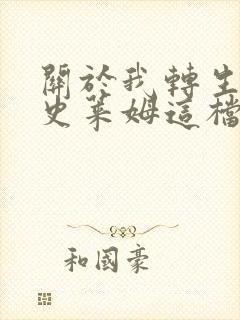 關於我轉生
史萊姆這檔
和國豪